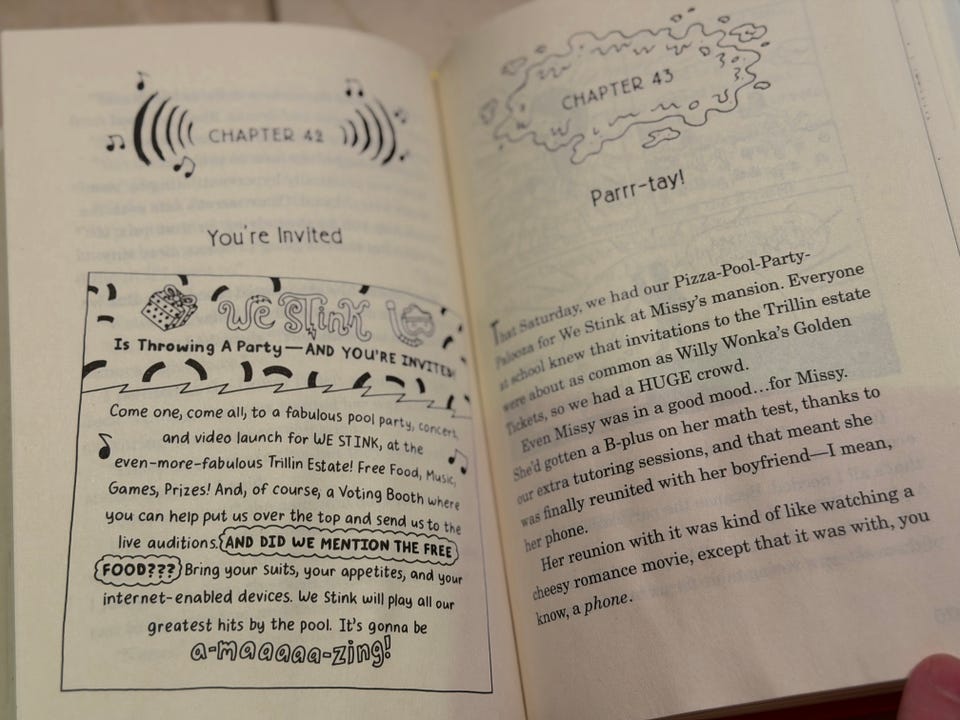 CHAPTER 42
You're Invited
We Stink
Is Throwing A Party—AND YOU'RE INVITED!
Come one, come all, to a fabulous pool party, concert,
and video launch for WE STINK, at the
even-more-fabulous Trillin Estate! Free Food, Music,
Games, Prizes! And, of course, a Voting Booth where
you can help put us over the top and send us to the
live auditions. AND DID WE MENTION THE FREE
FOOD??? Bring your suits, your appetites, and your
internet-enabled devices. We Stink will play all our
greatest hits by the pool. It's gonna be
a-maaaaa-zing!
CHAPTER 43
Parrr-tay!
That Saturday, we had our Pizza-Pool-Party-
Palooza for We Stink at Missy's mansion. Everyone
at school knew that invitations to the Trillin estate
were about as common as Willy Wonka's Golden
Tickets, so we had a HUGE crowd.
Even Missy was in a good mood...for Missy.
She'd gotten a B-plus on her math test, thanks to
our extra tutoring sessions, and that meant she
was finally reunited with her boyfriend—I mean,
her phone.
Her reunion with it was kind of like watching a
cheesy romance movie, except that it was with, you
know, a phone.